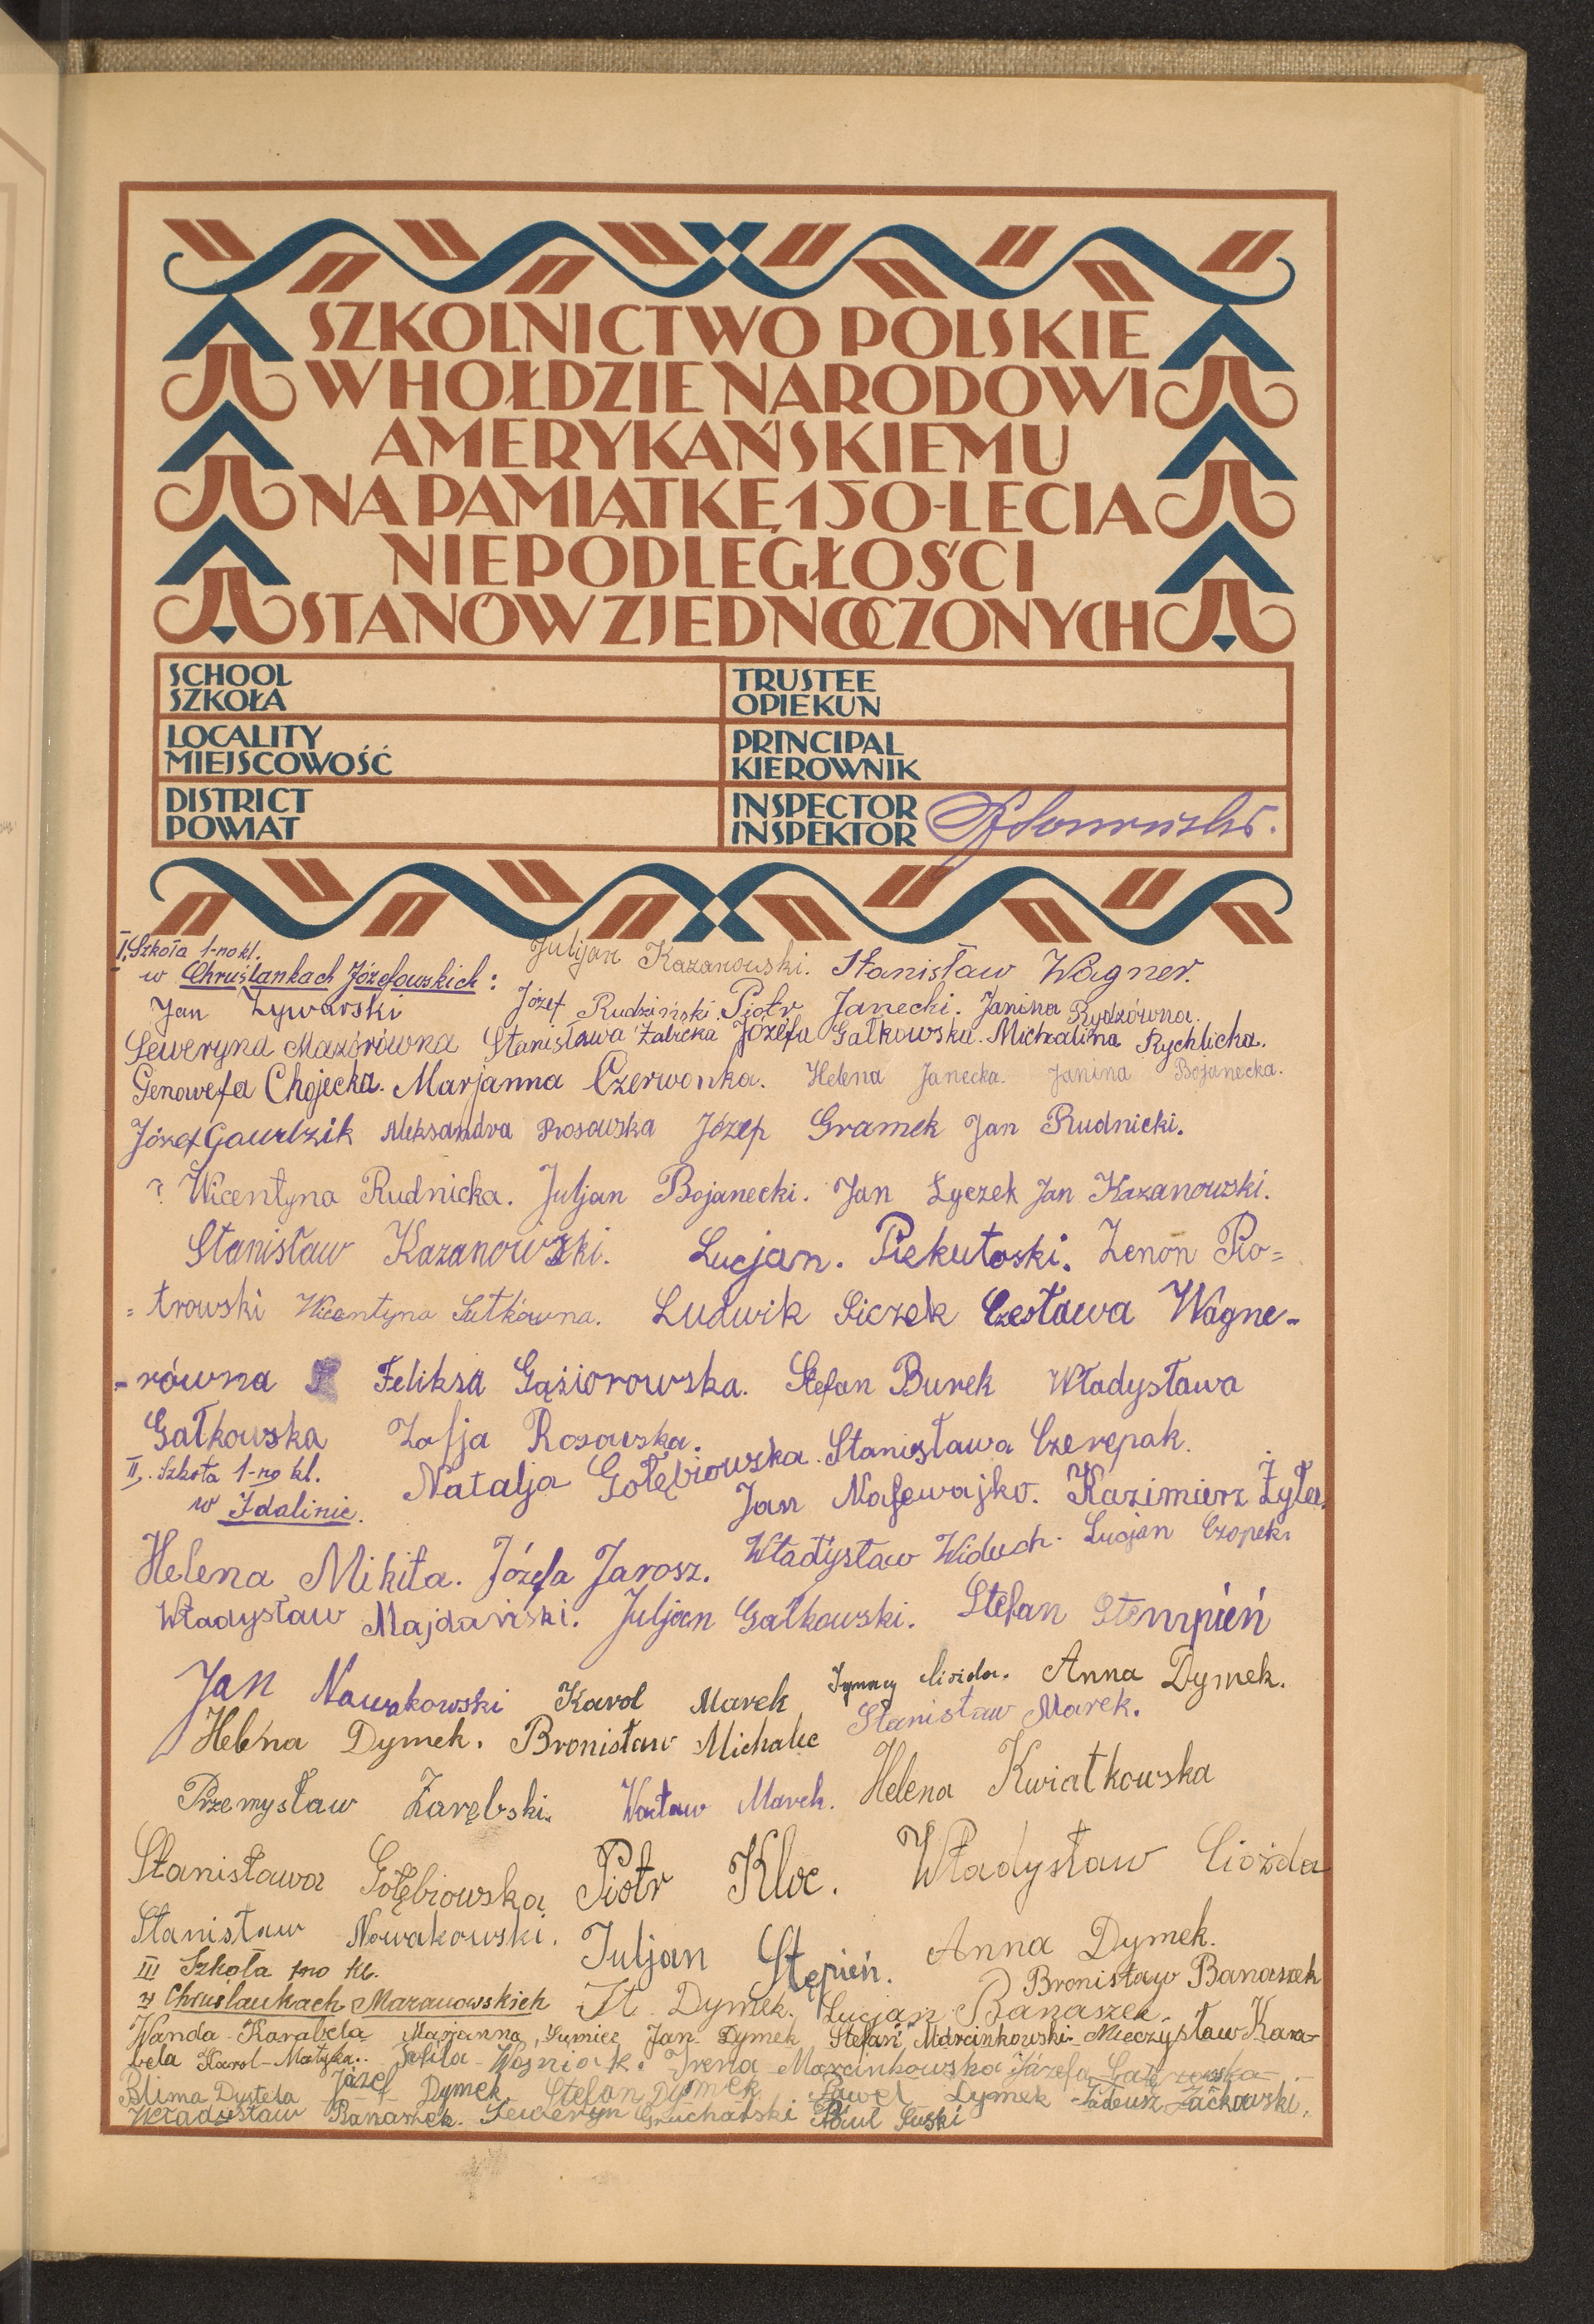 SZKOLNICTWO POLSKIE
W HOŁDZIE NARODOWI
AMERYKAŃSKIEMU
NA PAMIĄTKĘ 150-LECIA
NIEPODLEGŁOŚCI
STANÓW ZJEDNOCZONYCH
SCHOOL
SZKOŁA
TRUSTEE
OPIEKUN
LOCALITY
MIEJSCOWOŚĆ
PRINCIPAL
KIEROWNIK
DISTRICT
POWIAT
INSPECTOR
INSPEKTOR
I. Szkoła 1-no kl.
w Chruślankach Józefowskich:
Juljan Kazanowski. Stanisław Wagner.
Jan Żywarski Józef Rudziński. Piotr Janecki. Janina Rydzówna.
Seweryna Mazórówna Stanisława Żabicka Józefa Gałkowska. Michalina Rychlicka.
Genowefa Chojecka. Marjanna Czerwonka. Helena Janecka. Janina Bojanecka.
Józef Gaurdzik Aleksandra Rosowska Józef Gramek Jan Rudnicki.
Wicentyna Rudnicka. Juljan Bojanecki. Jan Łyczek Jan Kazanowski.
Stanisław Kazanowski. Lucjan. Piekutoski. Zenon Pio=
=trowski Wicentyna Sutkówna. Ludwik Siczek Czesława Wagne-
-równa Feliksa Gąsiorowska. Stefan Burek Władysława
Gałkowska Zofja Rosowska.
II. Szkoła 1-no kl.
w Idalinie.
Natalja Gołębiowska. Stanisława Czerepak.
Jan Nafewajko. Kazimierz Żyła.
Helena Mikita. Józefa Jarosz. Władysław Widuch. Lucjan Czopek.
Władysław Majdański. Juljan Gałkowski. Stefan Stempień
Jan Nawakowski Karol Marek Ignacy Cioida. Anna Dymek.
Helena Dymek. Bronisław Michalec Stanisław Marek.
Przemysław Zarębski. Wacław Marek. Helena Kwiatkowska
Stanisława Gołębiowska Piotr Kloc. Władysław Cioida
Stanisław Nowakowski. Juljan Stępień. Anna Dymek.
III Szkoła 1no kl.
w Chruślankach Mazanowskich
St. Dymek. Lucjan Banaszek. Bronisław Banaszek
Wanda Karabela Marjanna Jan Dymek Stefan Marcinkowski Mieczysław Kara-
bela Karol Matyka. Zofila Woźniak. Irena Marcinkowska Józefa
Blima Dystela Józef Dymek Stefan Dymek Paweł Dymek Tadeusz Żaćkowski.
Władysław Banaszek. Seweryn Gruchalski Paweł Guski